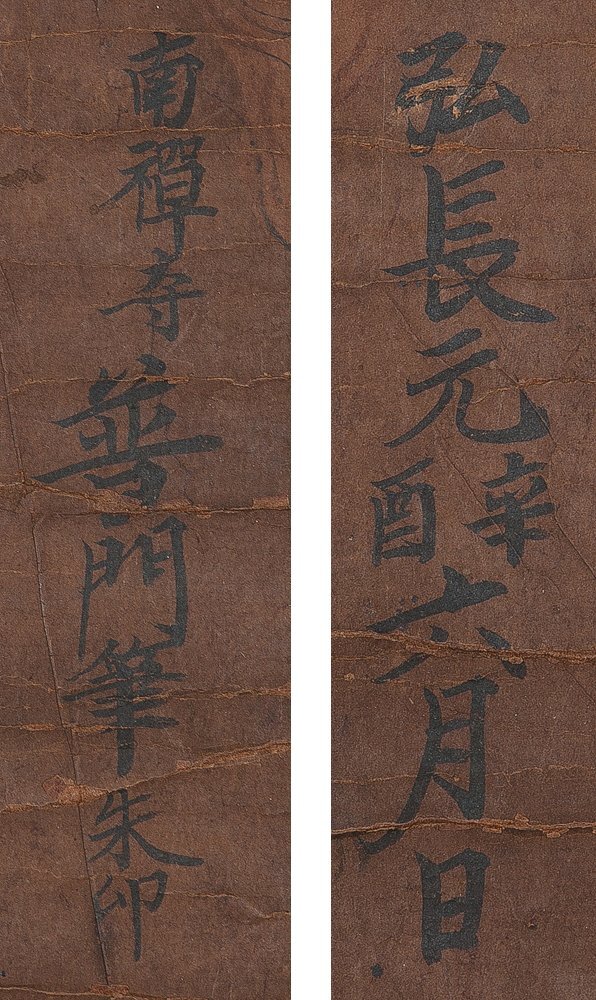 弘長元辛酉六月日
南禪寺普門筆朱印